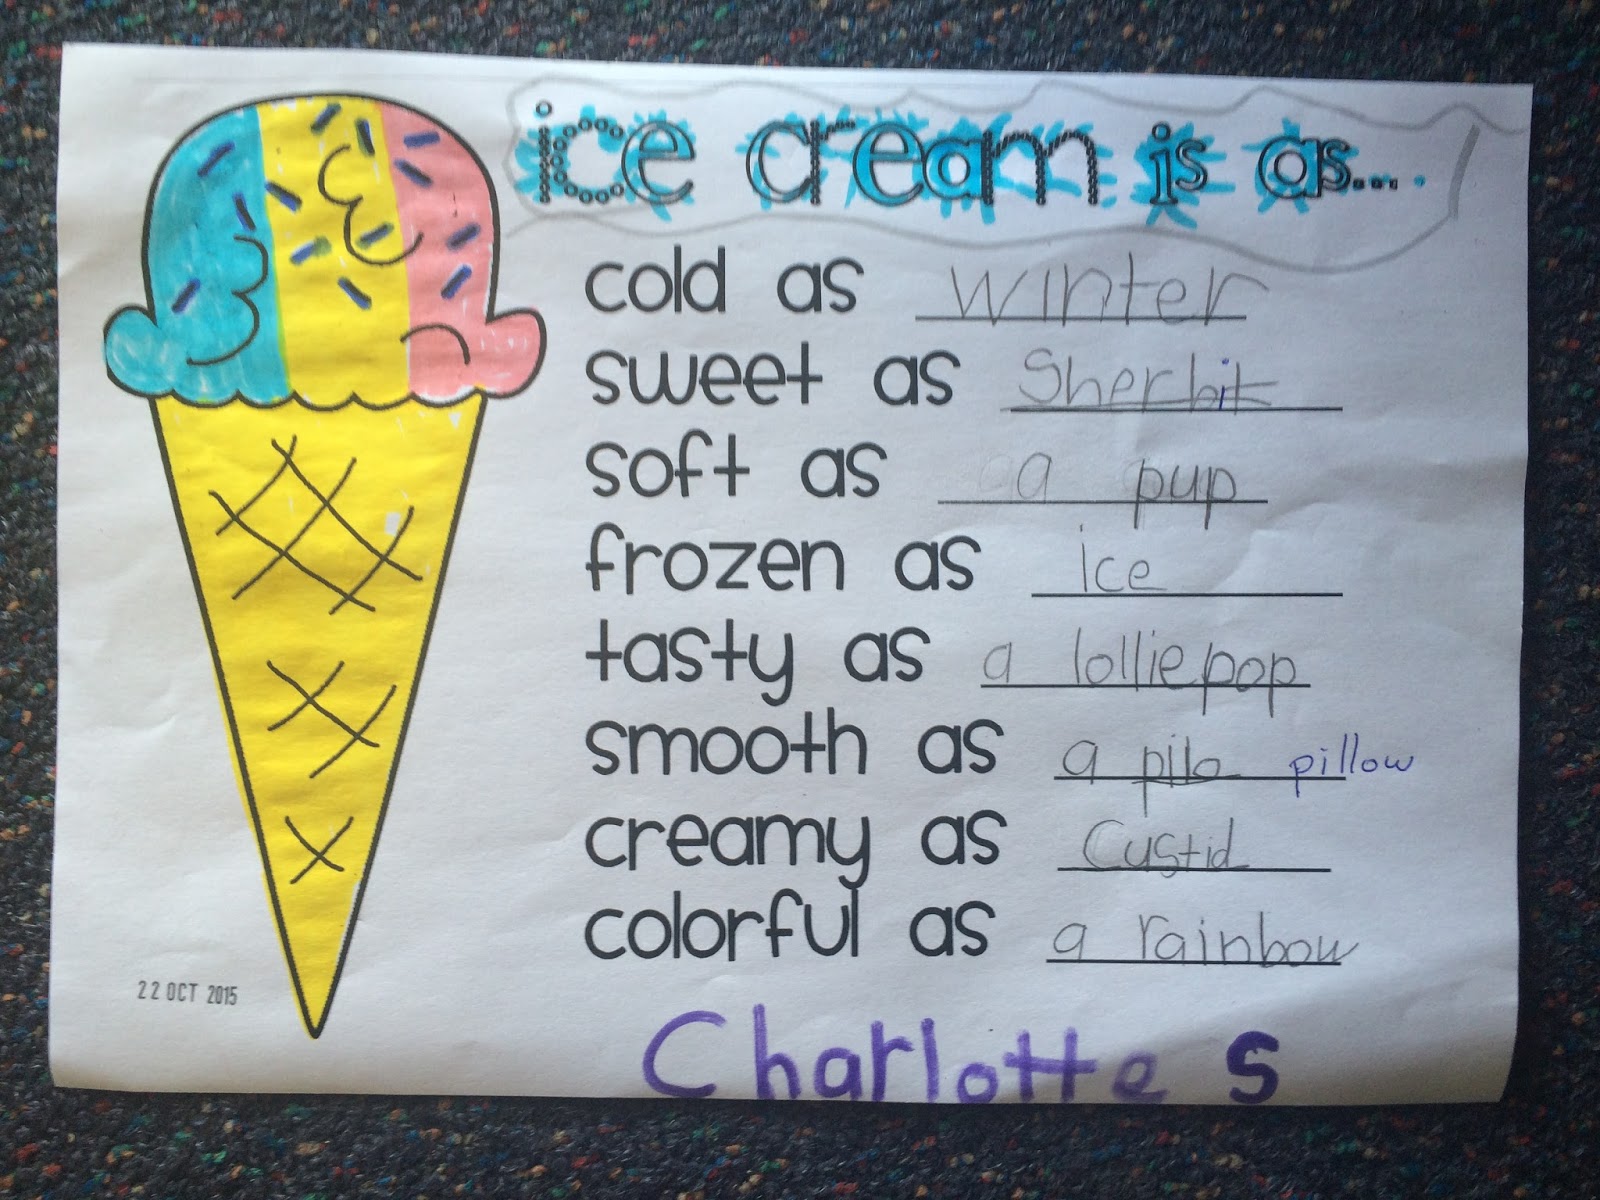 ice cream is as...
cold as winter
sweet as Sherbit
soft as a pup
frozen as ice
tasty as a lolliepop
smooth as a pilo pillow
creamy as Custid
colorful as a rainbow
22 OCT 2015
Charlotte S